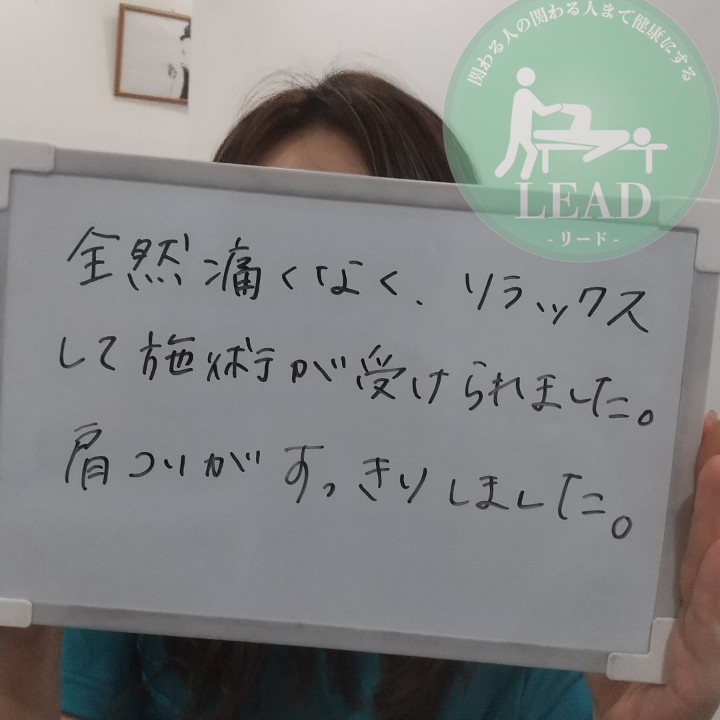 関わる人の関わる人まで健康にする
LEAD
- リード -
全然痛くなく、リラックス
して施術が受けられました。
肩コリがすっきりしました。